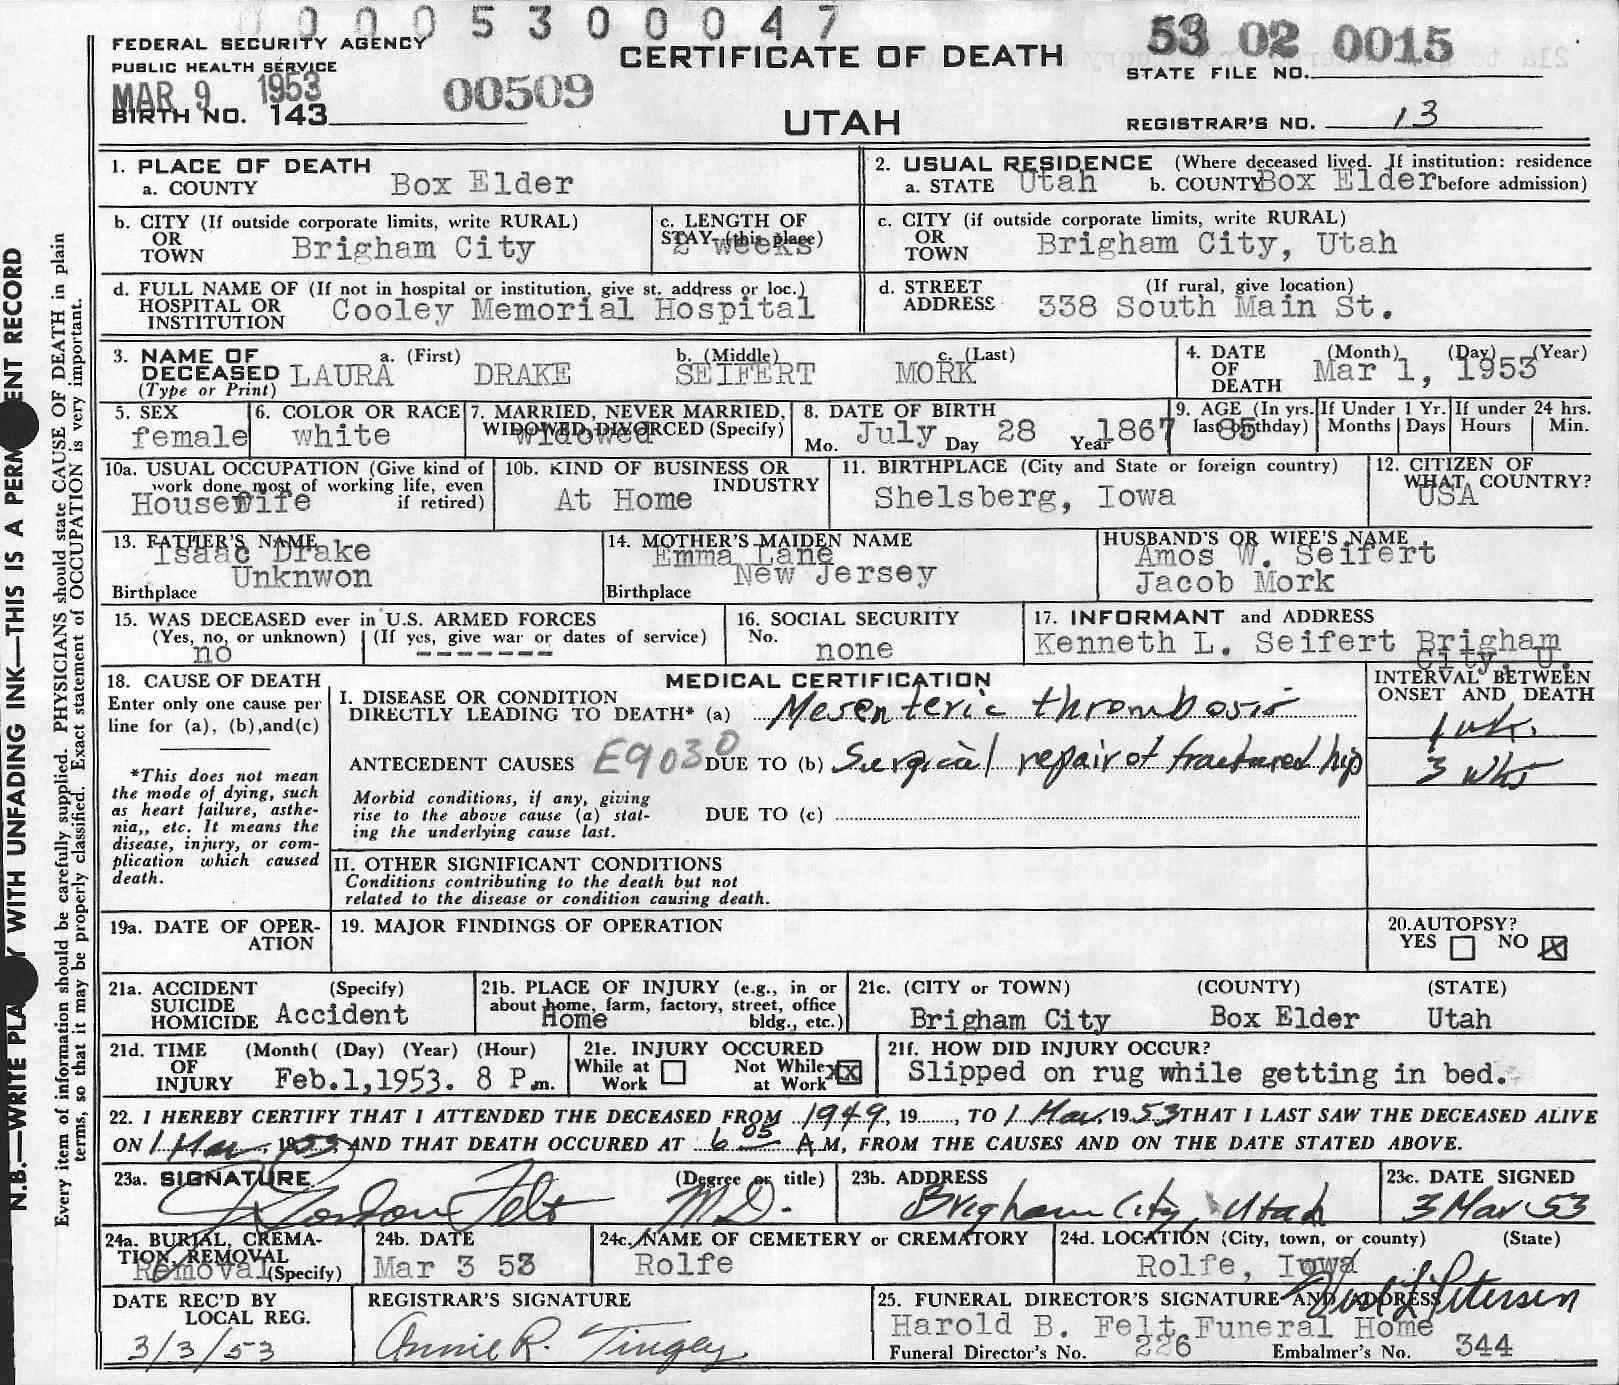 0 0 0 0 5 3 0 0 0 4 7
FEDERAL SECURITY AGENCY
PUBLIC HEALTH SERVICE
MAR 9 1953
BIRTH NO. 143
00509
CERTIFICATE OF DEATH
UTAH
53 02 0015
STATE FILE NO.
REGISTRAR'S NO. 13
N.B.—WRITE PLA Y WITH UNFADING INK—THIS IS A PERM ENT RECORD
Every item of information should be carefully supplied. PHYSICIANS should state CAUSE OF DEATH in plain
terms, so that it may be properly classified. Exact statement of OCCUPATION is very important.
1. PLACE OF DEATH
a. COUNTY Box Elder
2. USUAL RESIDENCE (Where deceased lived. If institution: residence
a. STATE Utah b. COUNTY Box Elder before admission)
b. CITY (If outside corporate limits, write RURAL)
OR
TOWN Brigham City
c. LENGTH OF
STAY (this place)
2 weeks
c. CITY (if outside corporate limits, write RURAL)
OR
TOWN Brigham City, Utah
d. FULL NAME OF (If not in hospital or institution, give st. address or loc.)
HOSPITAL OR
INSTITUTION Cooley Memorial Hospital
d. STREET (If rural, give location)
ADDRESS 338 South Main St.
3. NAME OF a. (First) b. (Middle) c. (Last)
DECEASED LAURA DRAKE SEIFERT MORK
(Type or Print)
4. DATE (Month) (Day) (Year)
OF
DEATH Mar 1, 1953
5. SEX
female
6. COLOR OR RACE
white
7. MARRIED, NEVER MARRIED,
WIDOWED, DIVORCED (Specify)
widowed
8. DATE OF BIRTH
Mo. July Day 28 Year 1867
9. AGE (In yrs.
last birthday)
85
If Under 1 Yr.
Months Days
If under 24 hrs.
Hours Min.
10a. USUAL OCCUPATION (Give kind of
work done most of working life, even
if retired)
Housewife
10b. KIND OF BUSINESS OR
INDUSTRY
At Home
11. BIRTHPLACE (City and State or foreign country)
Shelsberg, Iowa
12. CITIZEN OF
WHAT COUNTRY?
USA
13. FATHER'S NAME
Isaac Drake
Unknwon
Birthplace
14. MOTHER'S MAIDEN NAME
Emma Lane
New Jersey
Birthplace
HUSBAND'S OR WIFE'S NAME
Amos W. Seifert
Jacob Mork
15. WAS DECEASED ever in U.S. ARMED FORCES
(Yes, no, or unknown) (If yes, give war or dates of service)
no -------
16. SOCIAL SECURITY
No.
none
17. INFORMANT and ADDRESS
Kenneth L. Seifert Brigham
City, U.
18. CAUSE OF DEATH
Enter only one cause per
line for (a), (b),and(c)
*This does not mean
the mode of dying, such
as heart failure, asthe-
nia,, etc. It means the
disease, injury, or com-
plication which caused
death.
MEDICAL CERTIFICATION
I. DISEASE OR CONDITION
DIRECTLY LEADING TO DEATH* (a) Mesenteric thrombosis
ANTECEDENT CAUSES E9030 DUE TO (b) Surgical repair of fractured hip
Morbid conditions, if any, giving
rise to the above cause (a) stat-
ing the underlying cause last.
DUE TO (c)
INTERVAL BETWEEN
ONSET AND DEATH
1 wk.
3 wks
II. OTHER SIGNIFICANT CONDITIONS
Conditions contributing to the death but not
related to the disease or condition causing death.
19a. DATE OF OPER-
ATION
19. MAJOR FINDINGS OF OPERATION
20. AUTOPSY?
YES NO X
21a. ACCIDENT (Specify)
SUICIDE
HOMICIDE Accident
21b. PLACE OF INJURY (e.g., in or
about home, farm, factory, street, office
bldg., etc.)
Home
21c. (CITY or TOWN) (COUNTY) (STATE)
Brigham City Box Elder Utah
21d. TIME (Month( (Day) (Year) (Hour)
OF
INJURY Feb.1,1953. 8 P.m.
21e. INJURY OCCURED
While at Work
Not While at Work xx
21f. HOW DID INJURY OCCUR?
Slipped on rug while getting in bed.
22. I HEREBY CERTIFY THAT I ATTENDED THE DECEASED FROM 1949, 19...., TO 1 Mar. 1953 THAT I LAST SAW THE DECEASED ALIVE
ON 1 Mar. 1953 AND THAT DEATH OCCURED AT 6 05 A M, FROM THE CAUSES AND ON THE DATE STATED ABOVE.
23a. SIGNATURE (Degree or title)
Gordon Felt M.D.
23b. ADDRESS
Brigham City, Utah
23c. DATE SIGNED
3 Mar 53
24a. BURIAL, CREMA-
TION, REMOVAL
Removal (Specify)
24b. DATE
Mar 3 53
24c. NAME OF CEMETERY or CREMATORY
Rolfe
24d. LOCATION (City, town, or county) (State)
Rolfe, Iowa
DATE REC'D BY
LOCAL REG.
3/3/53
REGISTRAR'S SIGNATURE
Annie R. Tingey
25. FUNERAL DIRECTOR'S SIGNATURE AND ADDRESS
Petersen
Harold B. Felt Funeral Home
Funeral Director's No. 226 Embalmer's No. 344